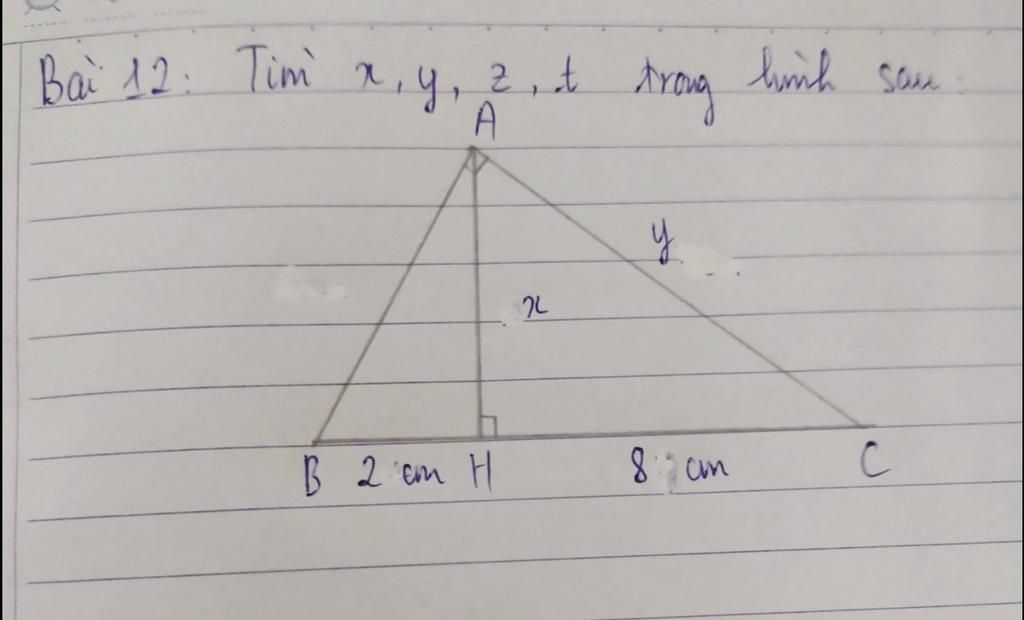 Bài 12: Tìm x, y, z, t trong hình sau:
A
y
x
B 2 cm H 8 cm C